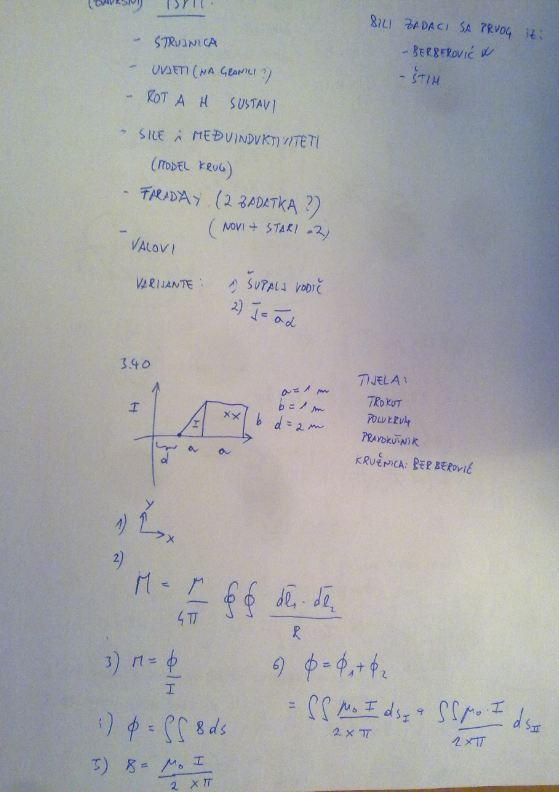 (ZAVRŠNI) ISPIT:
- STRUJNICA
- UVJETI (NA GRANICI?)
- ROT A H SUSTAVI
- SILE i MEĐUINDUKTIVITETI
(MODEL KRUG)
- FARADAY (2 ZADATKA?)
(NOVI + STARI = 2)
- VALOVI
VARIJANTE: 1) ŠUPALJ VODIČ
2) J = ad
BILI ZADACI SA PRVOG IZ:
- BERBEROVIĆ
- ŠTIH
3.40
I
I
XX
b
d a a
a = 1 m
b = 1 m
d = 2 m
TIJELA:
TROKUT
POLUKRUG
PRAVOKUTNIK
KRUŽNICA: BERBEROVIĆ
1) y
x
2)
M = μ/4π ∮∮ dl₁ · dl₂ / R
3) M = ϕ/I
6) ϕ = ϕ₁ + ϕ₂
= ∬ μ₀ I / 2xπ ds_I + ∬ μ₀ · I / 2xπ ds_II
ϕ = ∬ B ds
5) B = μ₀ I / 2xπ